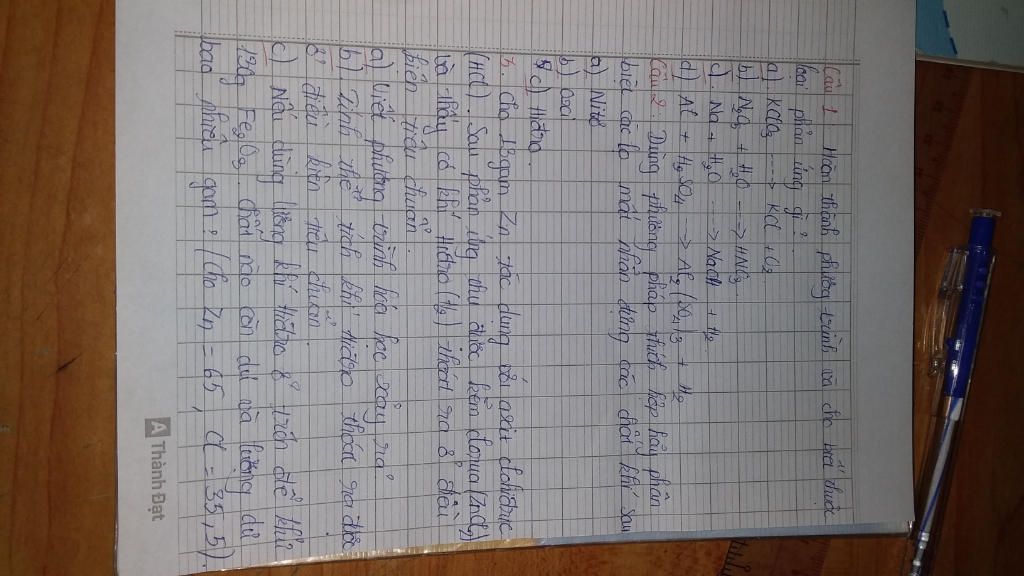 Câu 1. Hoàn thành phương trình và cho biết thuộc
loại phản ứng gì?
a) KClO₃ ---> KCl + O₂
b) N₂O₅ + H₂O --> HNO₃
c) Na + H₂O --> NaOH + H₂
d) Al + H₂SO₄ --> Al₂(SO₄)₃ + H₂
Câu 2. Dùng phương pháp thích hợp hãy phân
biệt các lọ mất nhãn đựng các chất khí sau
a) Nitơ
b) Oxi
c) Hiđro
Cho gam Zn tác dụng với axit clohiđric
(HCl). Sau phản ứng thu được kẽm clorua (ZnCl₂)
và thấy có khí Hiđro (H₂) thoát ra ở điều
kiện tiêu chuẩn.
a) Viết phương trình hóa học xảy ra
b) Tính thể tích khí Hiđro thoát ra
ở điều kiện tiêu chuẩn.
c) Nếu dùng lượng khí Hiđro ở trên để khử
Fe₂O₃. Chất nào còn dư và lượng dư
bao nhiêu gam? (Cho Zn = 65, Cl = 35,5).
A Thành Đạt